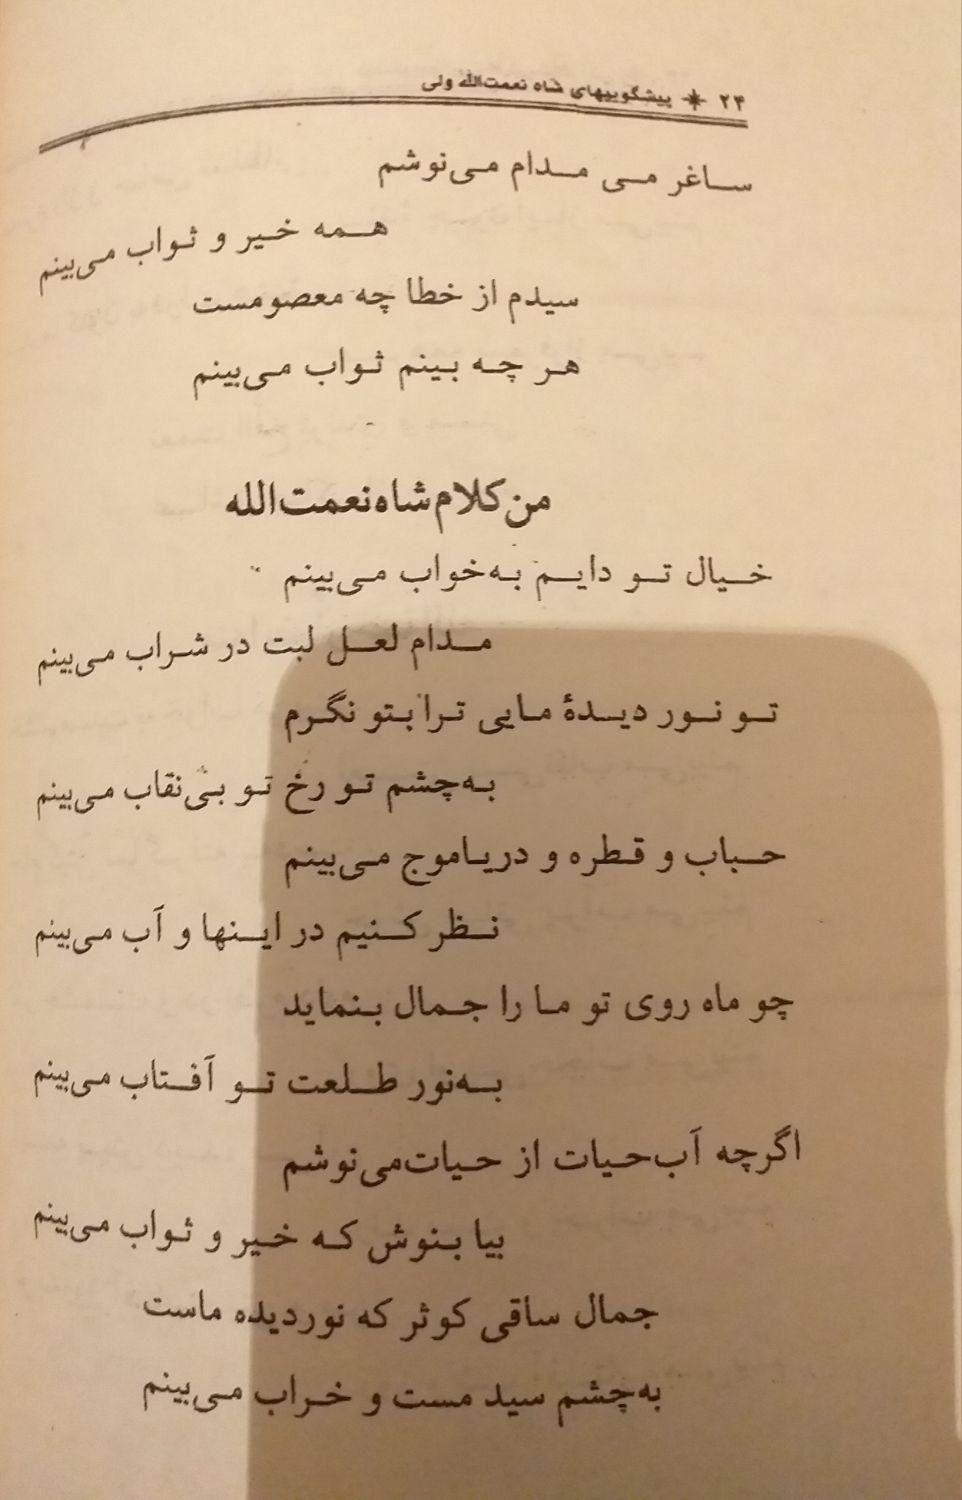 ۲۴ ✴ پیشگوییهای شاه نعمت‌الله ولی
ساغر می مدام می‌نوشم
همه خیر و ثواب می‌بینم
سیدم از خطا چه معصومست
هر چه بینم ثواب می‌بینم
من کلام شاه نعمت‌الله
خیال تو دایم به‌خواب می‌بینم
مدام لعل لبت در شراب می‌بینم
تو نور دیدهٔ مایی ترا بتو نگرم
به‌چشم تو رخ تو بی‌نقاب می‌بینم
حباب و قطره و دریاموج می‌بینم
نظر کنیم در اینها و آب می‌بینم
چو ماه روی تو ما را جمال بنماید
به‌نور طلعت تو آفتاب می‌بینم
اگرچه آب‌حیات از حیات‌می‌نوشم
بیا بنوش که خیر و ثواب می‌بینم
جمال ساقی کوثر که نوردیده ماست
به‌چشم سید مست و خراب می‌بینم